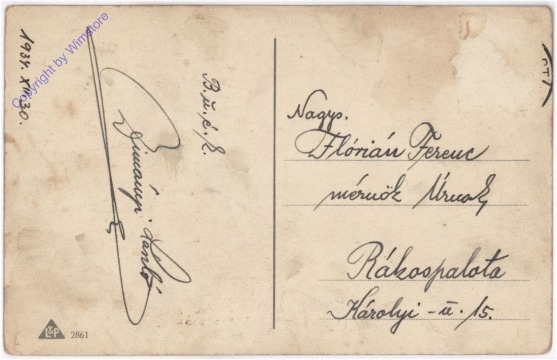 1934. XII. 30.
B. ú. é. k.
László
Nagys.
Flórián Ferenc
mérnök Úrnak
Rákospalota
Károlyi-u. 15.
L&P 2861
Copyright by Wimstore